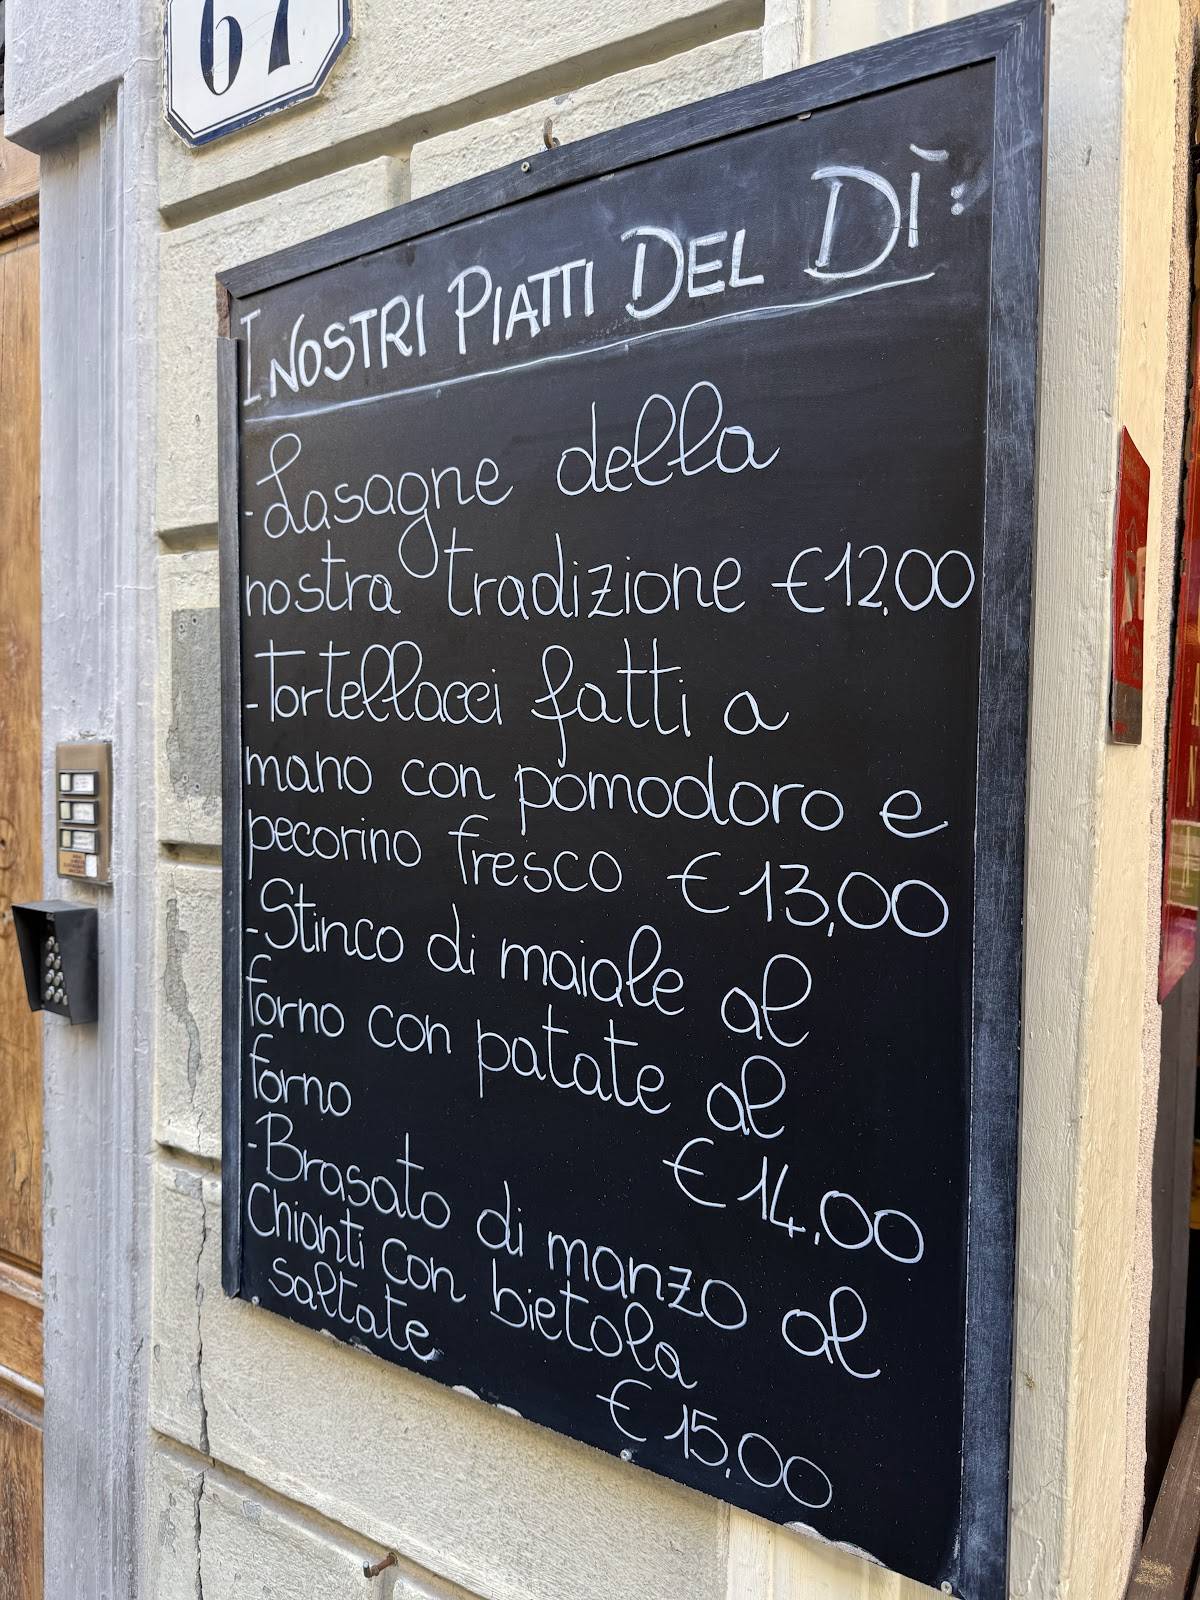 67
I NOSTRI PIATTI DEL DÌ:
-Lasagne della
nostra tradizione €12,00
-Tortellacci fatti a
mano con pomodoro e
pecorino fresco €13,00
-Stinco di maiale al
forno con patate al
forno
€14,00
-Brasato di manzo al
Chianti con bietola
saltate
€15,00